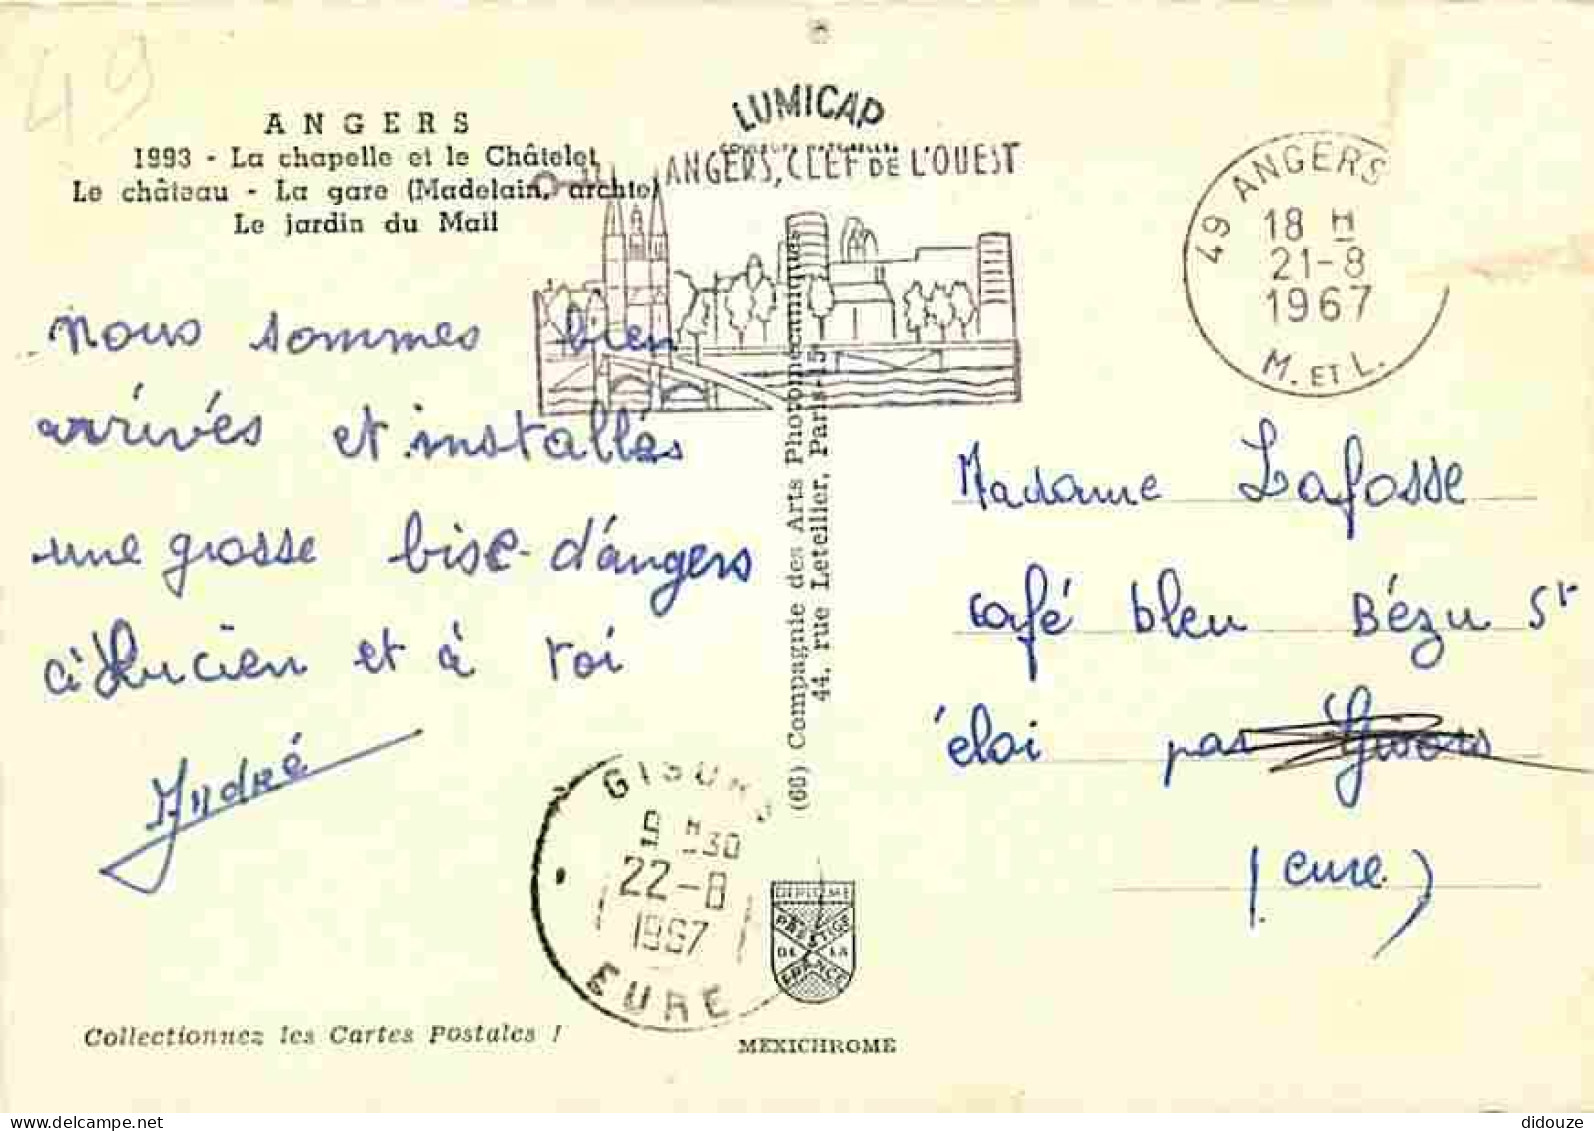 49
ANGERS
1993 - La chapelle et le Châtelet
Le château - La gare (Madelain, archte)
Le jardin du Mail
LUMICAP
COULEURS NATURELLES
ANGERS, CLEF DE L'OUEST
49 ANGERS
18 H
21-8
1967
M. ET L.
Nous sommes bien
arrivés et installés
une grosse bise d'angers
à Lucien et à toi
André
Madame Lafosse
café bleu Bézu St
éloi par Gisors
(eure)
(66) Compagnie des Arts Photomécaniques
44, rue Letellier, Paris-15
GISORS
9 H 30
22-8
1967
EURE
DIPLOME
PRESTIGE
DE LA
FRANCE
Collectionnez les Cartes Postales !
MEXICHROME
delcampe.net
didouze